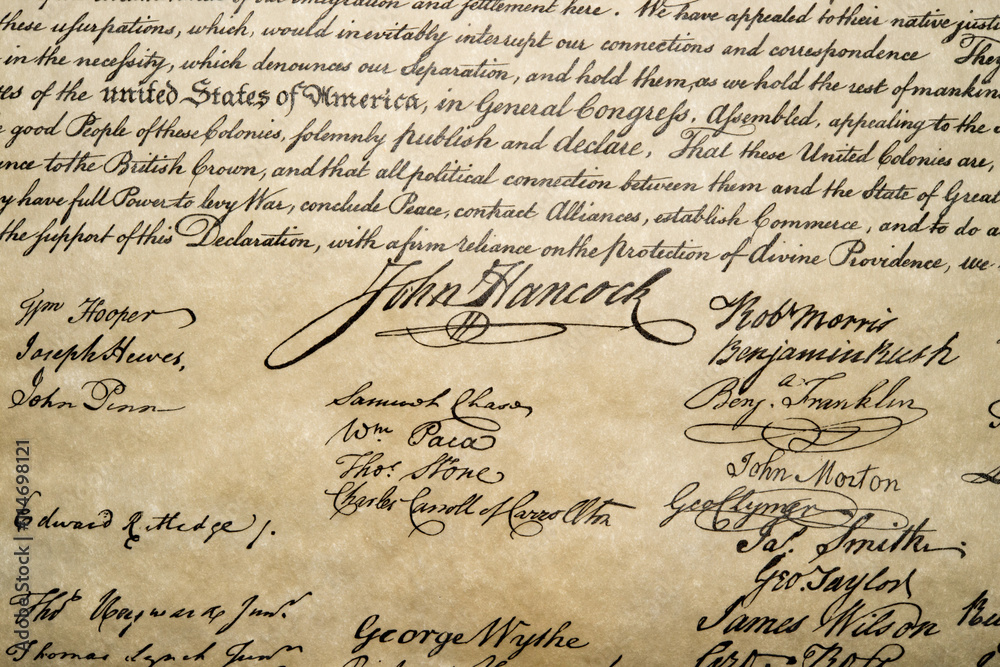 of our emigration and settlement here. We have appealed to their native justi
these usurpations, which, would inevitably interrupt our connections and correspondence They
in the necessity, which denounces our Separation, and hold them, as we hold the rest of mankin
es of the united States of America, in General Congress, Assembled, appealing to the
good People of these Colonies, solemnly publish and declare, That these United Colonies are,
ence to the British Crown, and that all political connection between them and the State of Great
y have full Power to levy War, conclude Peace, contract Alliances, establish Commerce, and to do a
the support of this Declaration, with a firm reliance on the Protection of divine Providence, we
John Hancock
Wm Hooper
Joseph Hewes,
John Penn
Edward Rutledge /.
Thos Heyward Junr
Thomas Lynch Junr
Samuel Chase
Wm Paca
Thos Stone
Charles Carroll of Carrollton
George Wythe
Robt Morris
Benjamin Rush
Benj. a Franklin
John Morton
Geo Clymer
Jas. Smith
Geo. Taylor
James Wilson
Geo. Ross
Adobe Stock | #564698121